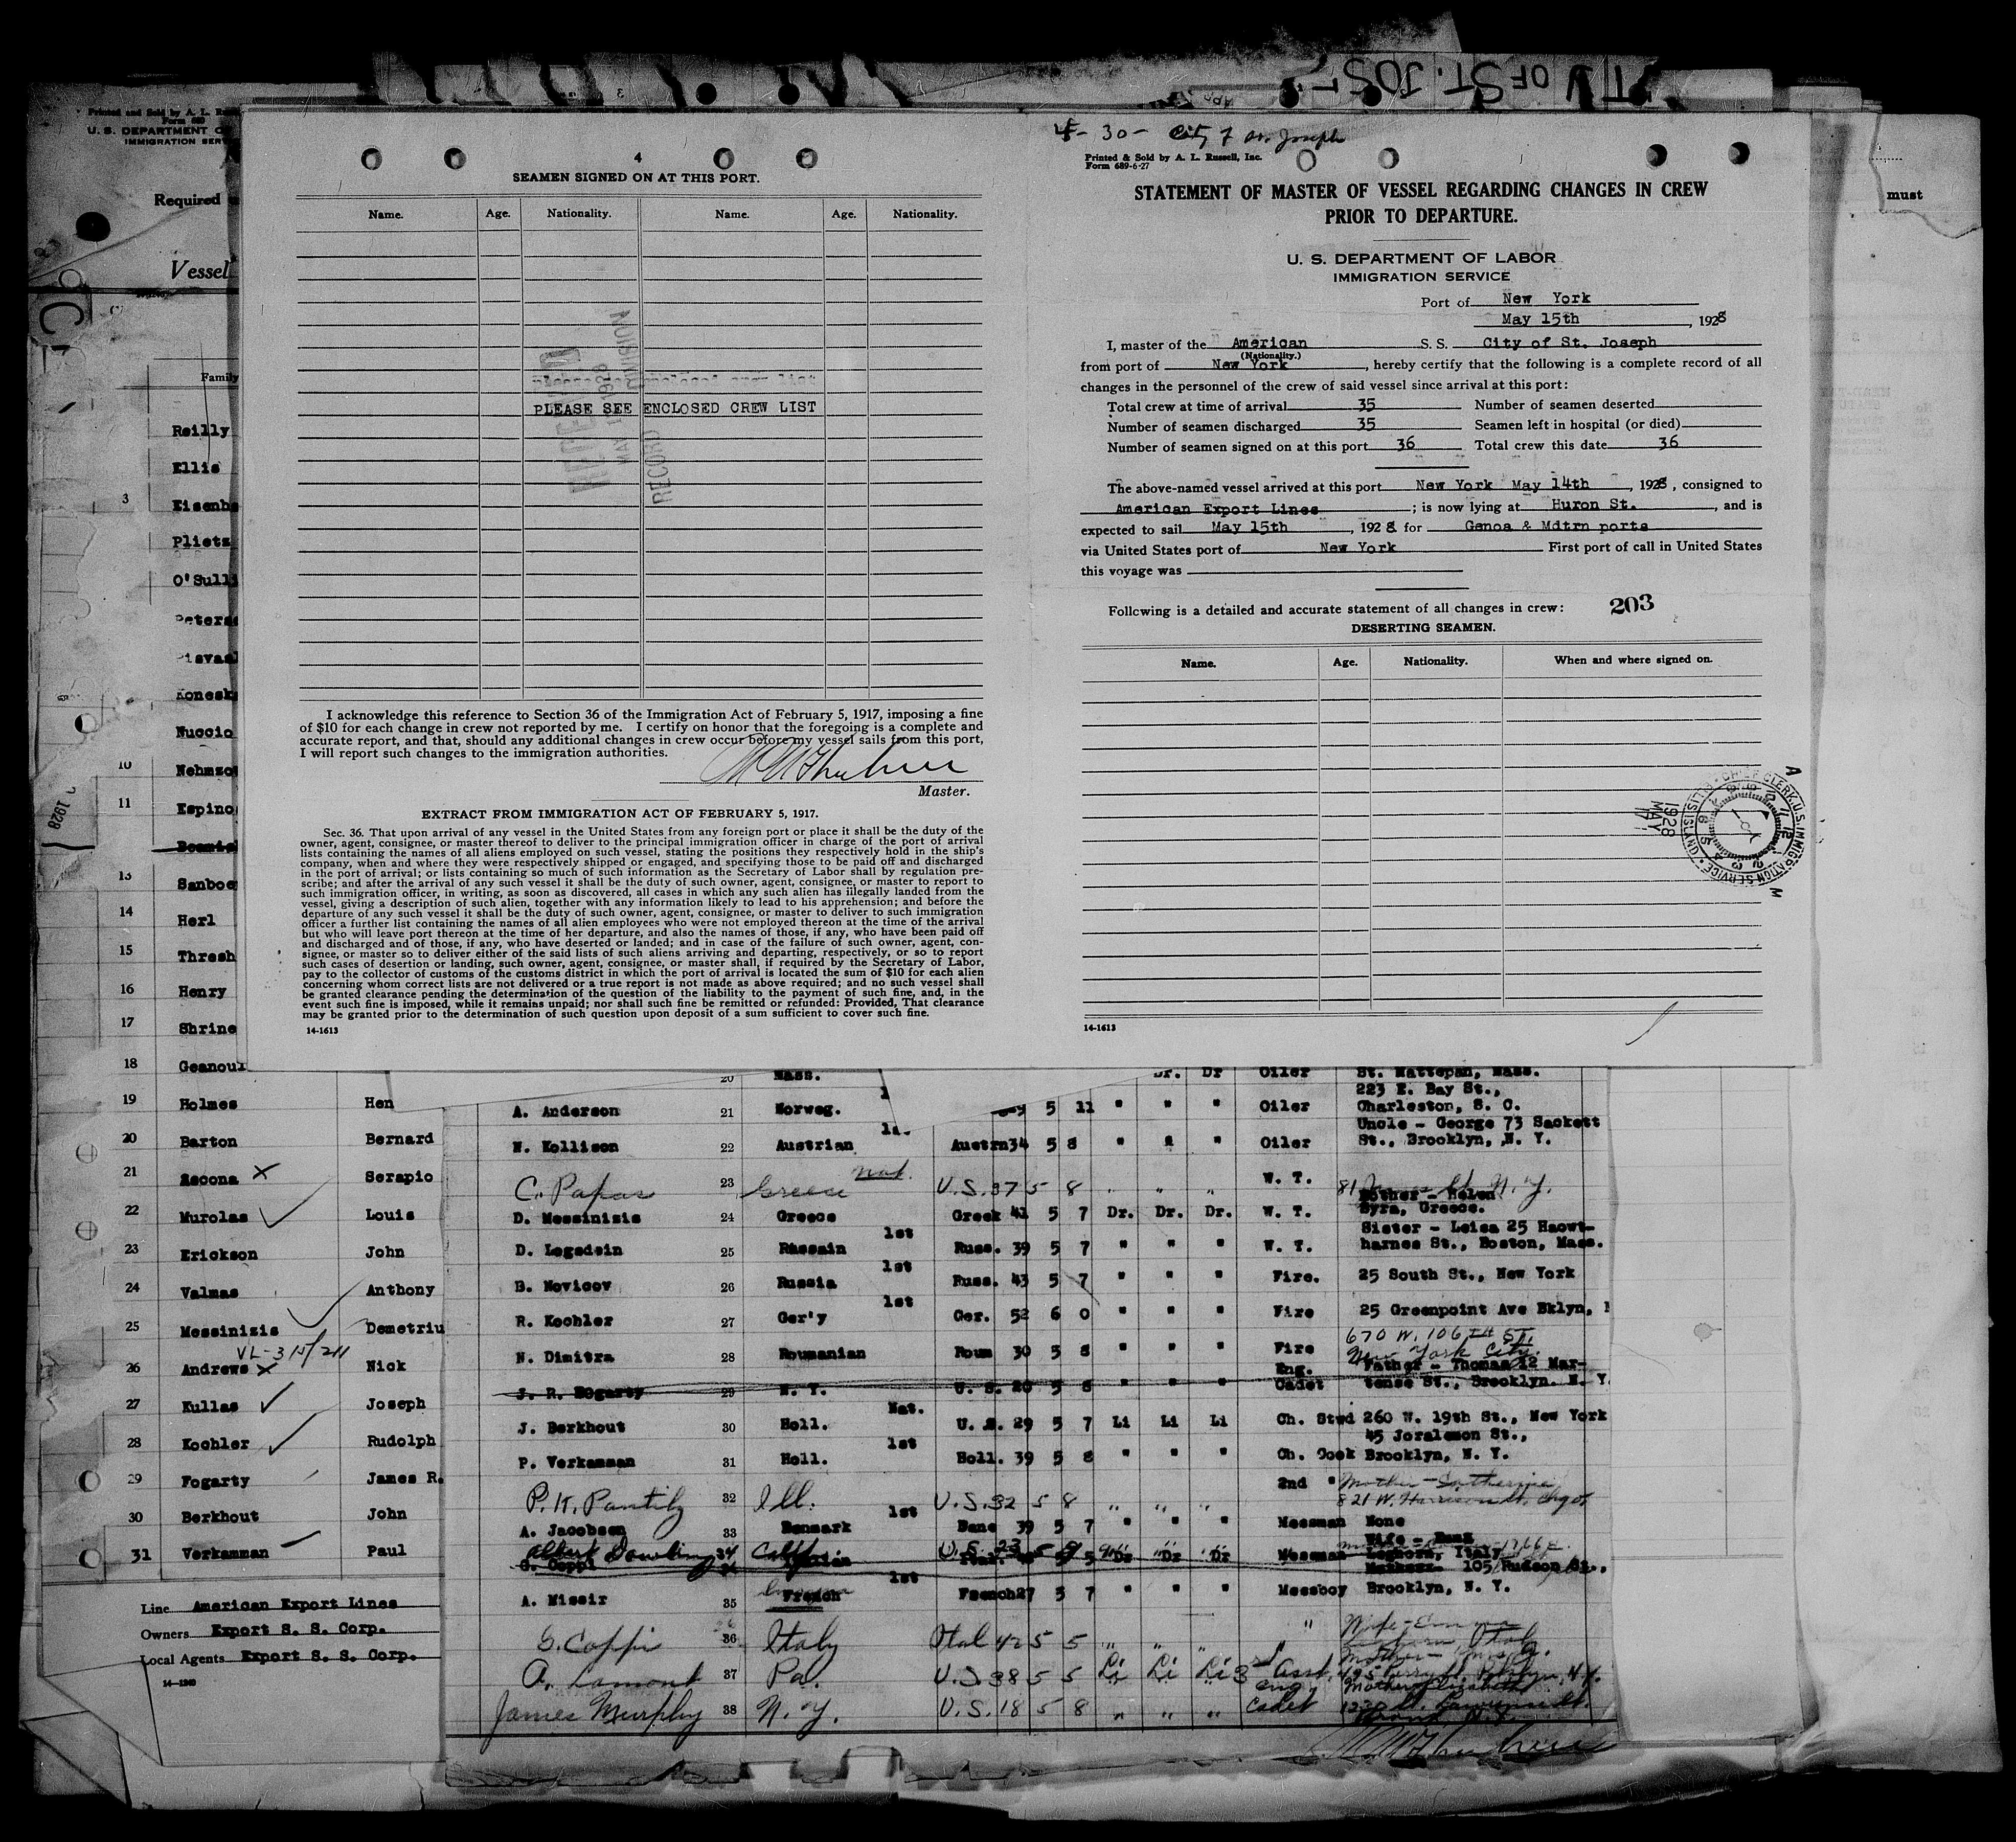 TY OF ST. JOS
Printed and Sold by A. L.
Form 680
U. S. DEPARTMENT O
IMMIGRATION SER
Required
Vessel
Family
must
Reilly
Ellis
3 Eisenh
Plietz
O'Sull
Peters
Konesk
Nuccio
10 Nehmzo
11 Espino
13 Sanboe
14 Herl
15 Thresh
16 Henry
17 Shrine
18 Geanou
19 Holmes Hen
20 Barton Bernard
21 Ascona x Serapio
22 Murolas Louis
23 Erickson John
24 Valmas Anthony
25 Messinizis Demetriu
VL-315/211
26 Andrews x Nick
27 Kullas Joseph
28 Kochler Rudolph
29 Fogarty James R.
30 Berkhout John
31 Verkamman Paul
Line American Export Lines
Owners Export S. S. Corp.
Local Agents Export S. S. Corp.
14—1240
4
SEAMEN SIGNED ON AT THIS PORT.
Name. Age. Nationality. Name. Age. Nationality.
PLEASE SEE ENCLOSED CREW LIST
RECORD DIVISION
MAY 1928
I acknowledge this reference to Section 36 of the Immigration Act of February 5, 1917, imposing a fine
of $10 for each change in crew not reported by me. I certify on honor that the foregoing is a complete and
accurate report, and that, should any additional changes in crew occur before my vessel sails from this port,
I will report such changes to the immigration authorities.
Master.
EXTRACT FROM IMMIGRATION ACT OF FEBRUARY 5, 1917.
Sec. 36. That upon arrival of any vessel in the United States from any foreign port or place it shall be the duty of the
owner, agent, consignee, or master thereof to deliver to the principal immigration officer in charge of the port of arrival
lists containing the names of all aliens employed on such vessel, stating the positions they respectively hold in the ship's
company, when and where they were respectively shipped or engaged, and specifying those to be paid off and discharged
in the port of arrival; or lists containing so much of such information as the Secretary of Labor shall by regulation pre-
scribe; and after the arrival of any such vessel it shall be the duty of such owner, agent, consignee, or master to report to
such immigration officer, in writing, as soon as discovered, all cases in which any such alien has illegally landed from the
vessel, giving a description of such alien, together with any information likely to lead to his apprehension; and before the
departure of any such vessel it shall be the duty of such owner, agent, consignee, or master to deliver to such immigration
officer a further list containing the names of all alien employees who were not employed thereon at the time of the arrival
but who will leave port thereon at the time of her departure, and also the names of those, if any, who have been paid off
and discharged and of those, if any, who have deserted or landed; and in case of the failure of such owner, agent, con-
signee, or master so to deliver either of the said lists of such aliens arriving and departing, respectively, or so to report
such cases of desertion or landing, such owner, agent, consignee, or master shall, if required by the Secretary of Labor,
pay to the collector of customs of the customs district in which the port of arrival is located the sum of $10 for each alien
concerning whom correct lists are not delivered or a true report is not made as above required; and no such vessel shall
be granted clearance pending the determination of the question of the liability to the payment of such fine, and, in the
event such fine is imposed, while it remains unpaid; nor shall such fine be remitted or refunded: Provided, That clearance
may be granted prior to the determination of such question upon deposit of a sum sufficient to cover such fine.
14-1613
4- 30- City of St. Joseph
Printed & Sold by A. L. Russell, Inc.
Form 689-6-27
STATEMENT OF MASTER OF VESSEL REGARDING CHANGES IN CREW
PRIOR TO DEPARTURE.
U. S. DEPARTMENT OF LABOR
IMMIGRATION SERVICE
Port of New York
May 15th, 1928
I, master of the American S. S. City of St. Joseph
(Nationality.)
from port of New York, hereby certify that the following is a complete record of all
changes in the personnel of the crew of said vessel since arrival at this port:
Total crew at time of arrival 35 Number of seamen deserted
Number of seamen discharged 35 Seamen left in hospital (or died)
Number of seamen signed on at this port 36 Total crew this date 36
The above-named vessel arrived at this port New York May 14th, 1928, consigned to
American Export Lines; is now lying at Huron St., and is
expected to sail May 15th, 1928 for Genoa & Mdtrn ports
via United States port of New York First port of call in United States
this voyage was
Following is a detailed and accurate statement of all changes in crew: 203
DESERTING SEAMEN.
Name. Age. Nationality. When and where signed on.
CHIEF CLERK, U.S. IMMIGRATION SERVICE
1928 MAY
14-1613
20 Mass. Dr. Dr Oiler St. Mattapan, Mass.
A. Anderson 21 Norweg. 5 11 " " " Oiler 223 E. Bay St., Charleston, S. C.
N. Kollison 22 Austrian Austrn 34 5 8 " " " Oiler Uncle - George 73 Sackett St., Brooklyn, N. Y.
C. Papas 23 Greece Nat. U.S. 37 5 8 " " " W. T. 81 N.Y.
D. Messinizis 24 Greece Greek 41 5 7 Dr. Dr. Dr. W. T. Mother - Helen Syra, Greece.
D. Legadein 25 Russain 1st Russ. 39 5 7 " " " W. T. Sister - Leisa 25 Haowt- harnes St., Boston, Mass.
B. Novicov 26 Russia 1st Russ. 43 5 7 " " " Fire. 25 South St., New York
R. Kochler 27 Ger'y 1st Ger. 52 6 0 " " " Fire 25 Greenpoint Ave Bklyn,
N. Dimitra 28 Roumanian Roum 30 5 8 " " " Fire 670 W. 106TH ST. New York City.
J. R. Fogarty 29 N. Y. U. S. 20 5 8 " " " Eng. Cadet Father - Thomas 12 Mar- tense St., Brooklyn. N. Y.
J. Berkhout 30 Holl. Nat. U. S. 29 5 7 Li Li Li Ch. Stwd 260 W. 19th St., New York
P. Verkamman 31 Holl. 1st Holl. 39 5 8 " " " Ch. Cook 45 Joralemon St., Brooklyn, N. Y.
P. K. Pantily 32 Ill. U.S. 32 5 8 " " " 2nd " Mother - Catherine 821 W. Harrison St. Chgo.
A. Jacobsen 33 Denmark 1st Dane 39 5 7 " " " Messman None
Albert Dowling 34 Calif. U.S. 23 5 9
G. Coppi Dr Dr Messman Wife - Leghorn, Italy
A. Nissir 35 French 1st French 27 5 7 " " " Messboy 105 Hudson St., Brooklyn, N. Y.
G. Coppi 36 Italy Ital 42 5 5 " " " " Wife - Emma Italy
A. Lamont 37 Pa. U.S. 38 5 5 Li Li Li 3rd Asst. Eng. Mother 495 Perry St.
James Murphy 38 N.Y. U.S. 18 5 8 " " " Cadet Mother Elizabeth 1230 St. Lawrence